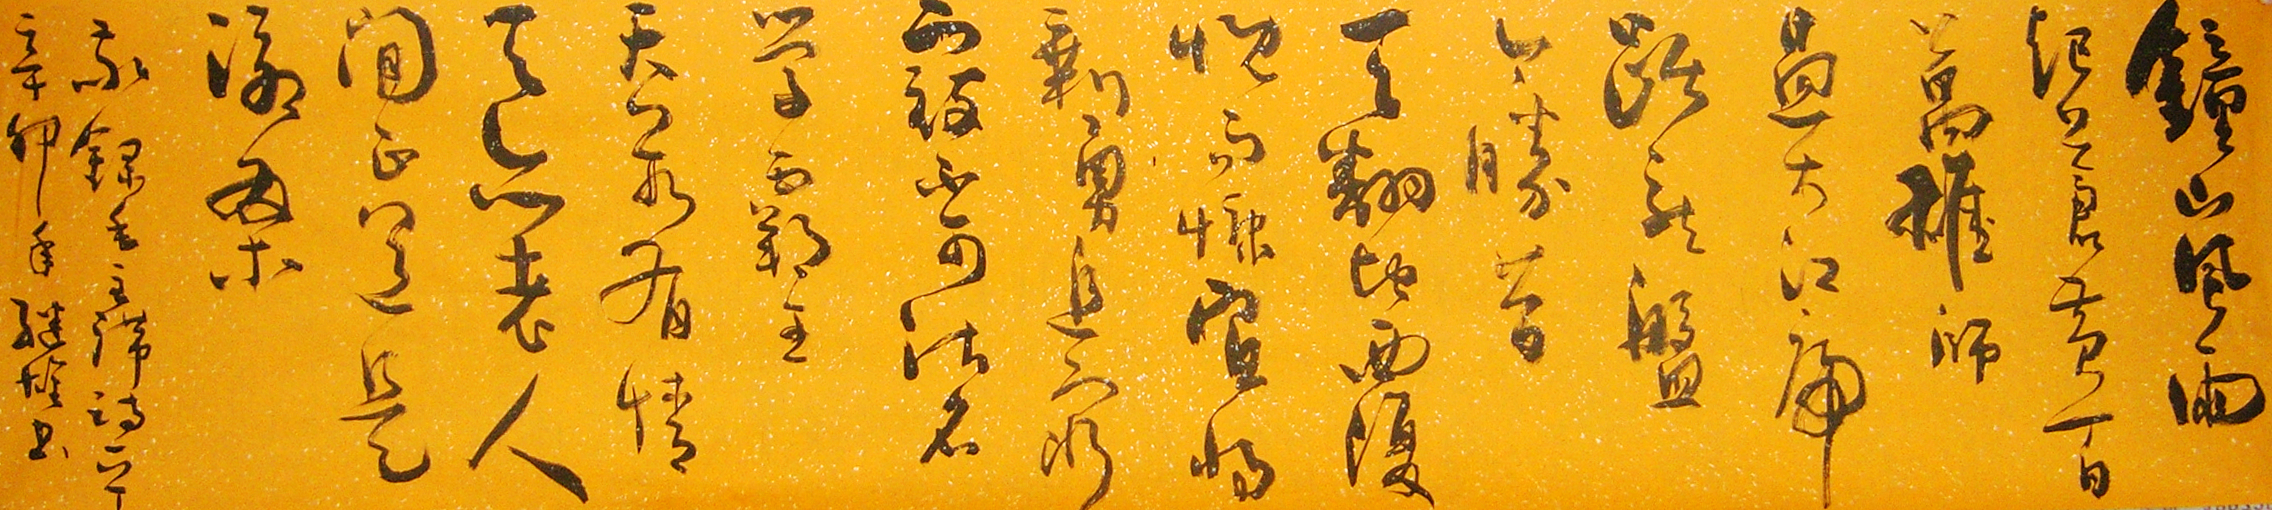 鐘山風雨
起蒼黄百
萬雄师
過大江虎
踞龙盤
今勝昔
天翻地覆
慨而慷宜将
剩勇追穷
寇不可沽名
学霸王
天若有情
天亦老人
间正道是
滄桑
敬録毛主席诗一首
辛卯年继书